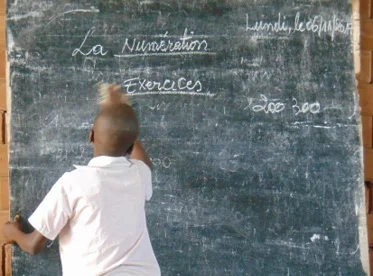 Lundi, le
La Numération
Exercices
200 300